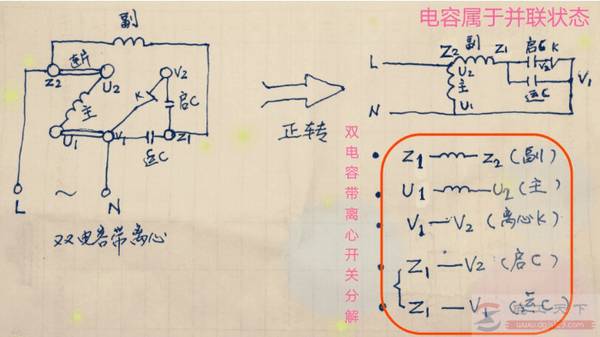 电容属于并联状态
副
Z2
连片
U2
V2
主
K
启C
U1
V1
运C
Z1
L
~
N
双电容带离心
正转
副
Z2
Z1
启C
K
V2
L
U2
主
运C
V1
U1
N
双电容带离心开关分解
Z1 — Z2 (副)
U1 — U2 (主)
V1 — V2 (离心K)
Z1 — V2 (启C)
Z1 — V1 (运C)